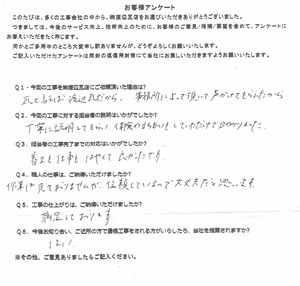 お客様アンケート
このたびは、多くの工事会社の中から、㈱渡辺瓦店をお選びいただきありがとうございました。
つきましては、今後のサービス向上、技術向上のために、お客様のご意見/感想/要望を含めて、アンケートに
お答えいただきたく存じます。
何かとご多用中のところ大変申し訳ありませんが、どうぞよろしくお願いします。
ご記入いただけたアンケートは周囲の返信用封筒にて当社にお戻しいただきますようお願いいたします。
Q1・今回の工事を㈱渡辺瓦店にご依頼頂いた理由は?
瓦と言えば渡辺瓦だから。 事務所によって頂いて声かけてもらえたから
Q2・今回の工事に対する担当者の説明はいかがでしたか?
丁寧に説明してもらい 保険の
Q3・担当者の工事完了までの対応はいかがでしたか?
仕事も はやくて 良かったです
Q4・職人の仕事は、ご納得いただけましたか?
作業は見ておりませんが、信頼しているので大丈夫だと思います
Q5・工事の仕上がりは、ご納得いただけましたか?
満足しております
Q6・今後お知り合い、ご近所の方で屋根工事をされる方がいらしたら、当社を推薦されますか?
はい
※その他、ご意見ありましたらご記入ください。